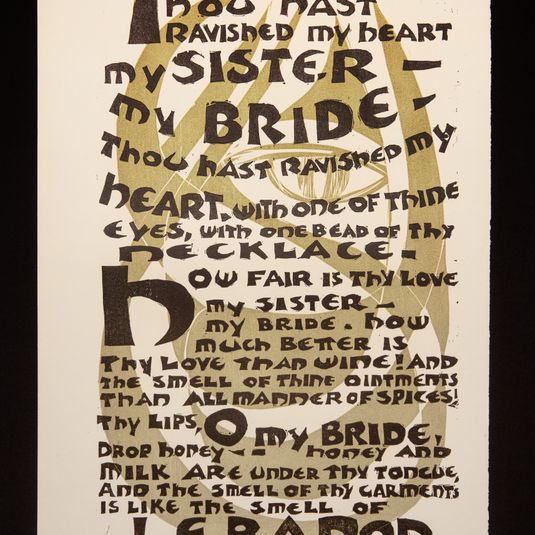 Thou hast
ravished my heart
my SISTER –
my BRIDE –
Thou hast ravished my
heart, with one of thine
eyes, with one bead of thy
necklace –
How fair is thy love
my sister –
my bride. how
much better is
thy love than wine! and
the smell of thine ointments
than all manner of spices!
Thy lips, O my bride,
drop honey – – honey and
milk are under thy tongue,
and the smell of thy garments
is like the smell of
LEBANON